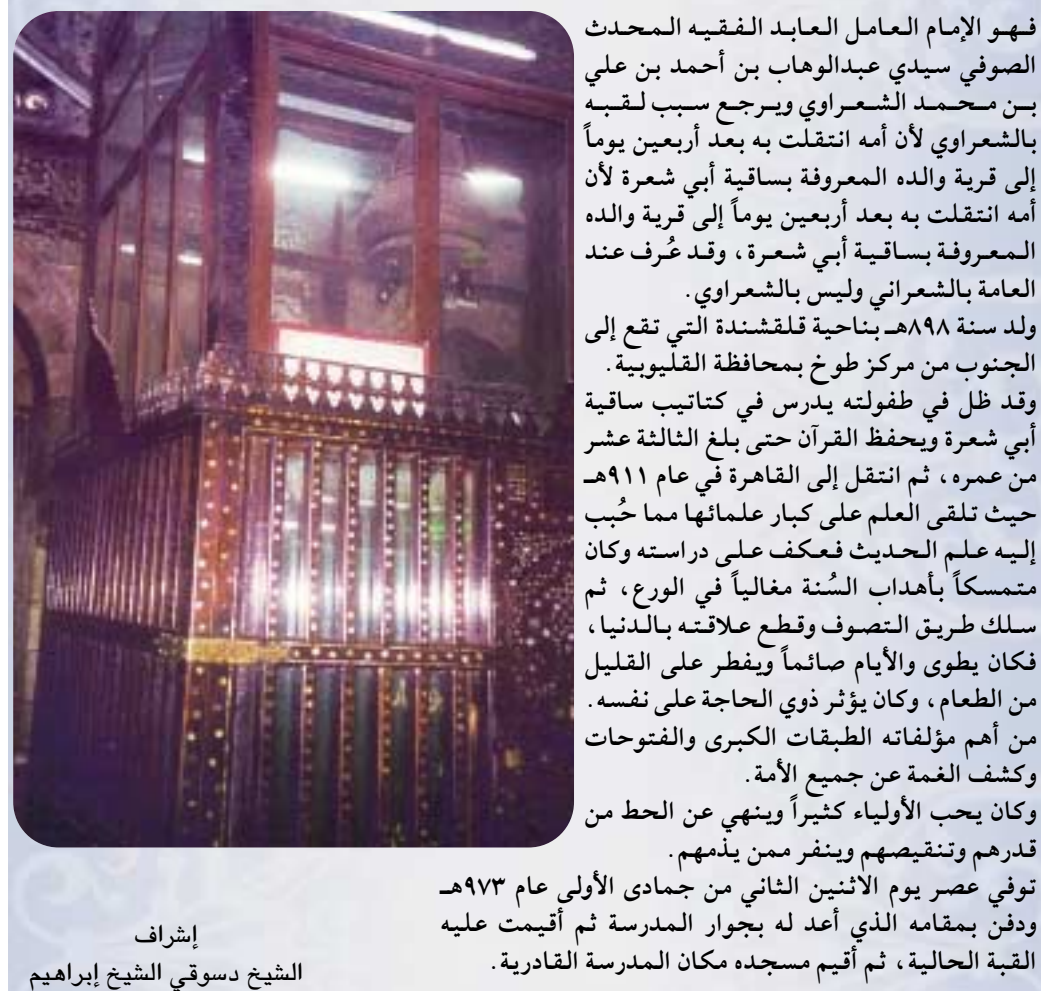 فهو الإمام العامل العابد الفقيه المحدث
الصوفي سيدي عبدالوهاب بن أحمد بن علي
بن محمد الشعراوي ويرجع سبب لقبه
بالشعراوي لأن أمه انتقلت به بعد أربعين يوماً
إلى قرية والده المعروفة بساقية أبي شعرة لأن
أمه انتقلت به بعد أربعين يوماً إلى قرية والده
المعروفة بساقية أبي شعرة، وقد عُرف عند
العامة بالشعراني وليس بالشعراوي.
ولد سنة ٨٩٨هـ بناحية قلقشندة التي تقع إلى
الجنوب من مركز طوخ بمحافظة القليوبية.
وقد ظل في طفولته يدرس في كتاتيب ساقية
أبي شعرة ويحفظ القرآن حتى بلغ الثالثة عشر
من عمره، ثم انتقل إلى القاهرة في عام ٩١١هـ
حيث تلقى العلم على كبار علمائها مما حُبب
إليه علم الحديث فعكف على دراسته وكان
متمسكاً بأهداب السُنة مغالياً في الورع، ثم
سلك طريق التصوف وقطع علاقته بالدنيا،
فكان يطوى والأيام صائماً ويفطر على القليل
من الطعام، وكان يؤثر ذوي الحاجة على نفسه.
من أهم مؤلفاته الطبقات الكبرى والفتوحات
وكشف الغمة عن جميع الأمة.
وكان يحب الأولياء كثيراً وينهي عن الحط من
قدرهم وتنقيصهم وينفر ممن يذمهم.
توفي عصر يوم الاثنين الثاني من جمادى الأولى عام ٩٧٣هـ
ودفن بمقامه الذي أعد له بجوار المدرسة ثم أقيمت عليه
القبة الحالية، ثم أقيم مسجده مكان المدرسة القادرية.
إشراف
الشيخ دسوقي الشيخ إبراهيم